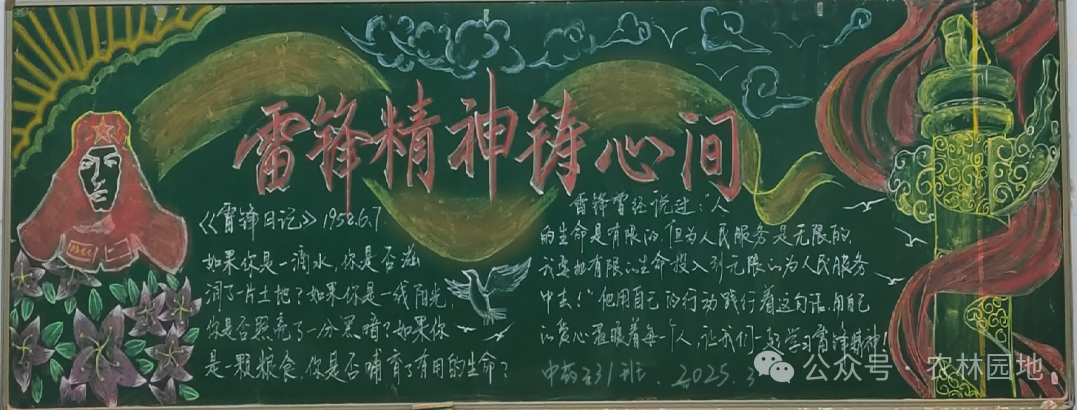 雷锋精神铸心间
《雷锋日记》1958.6.7
如果你是一滴水，你是否滋
润了一片土地？如果你是一线阳光，
你是否照亮了一分黑暗？如果你
是一颗粮食，你是否哺育了有用的生命？
雷锋曾经说过：“人
的生命是有限的，但为人民服务是无限的，
我要把有限的生命投入到无限的为人民服务
中去！”他用自己的行动践行着这句话，用自己
的爱心温暖着每一个人，让我们一起学习雷锋精神！
231班 2025.3
公众号·农林园地